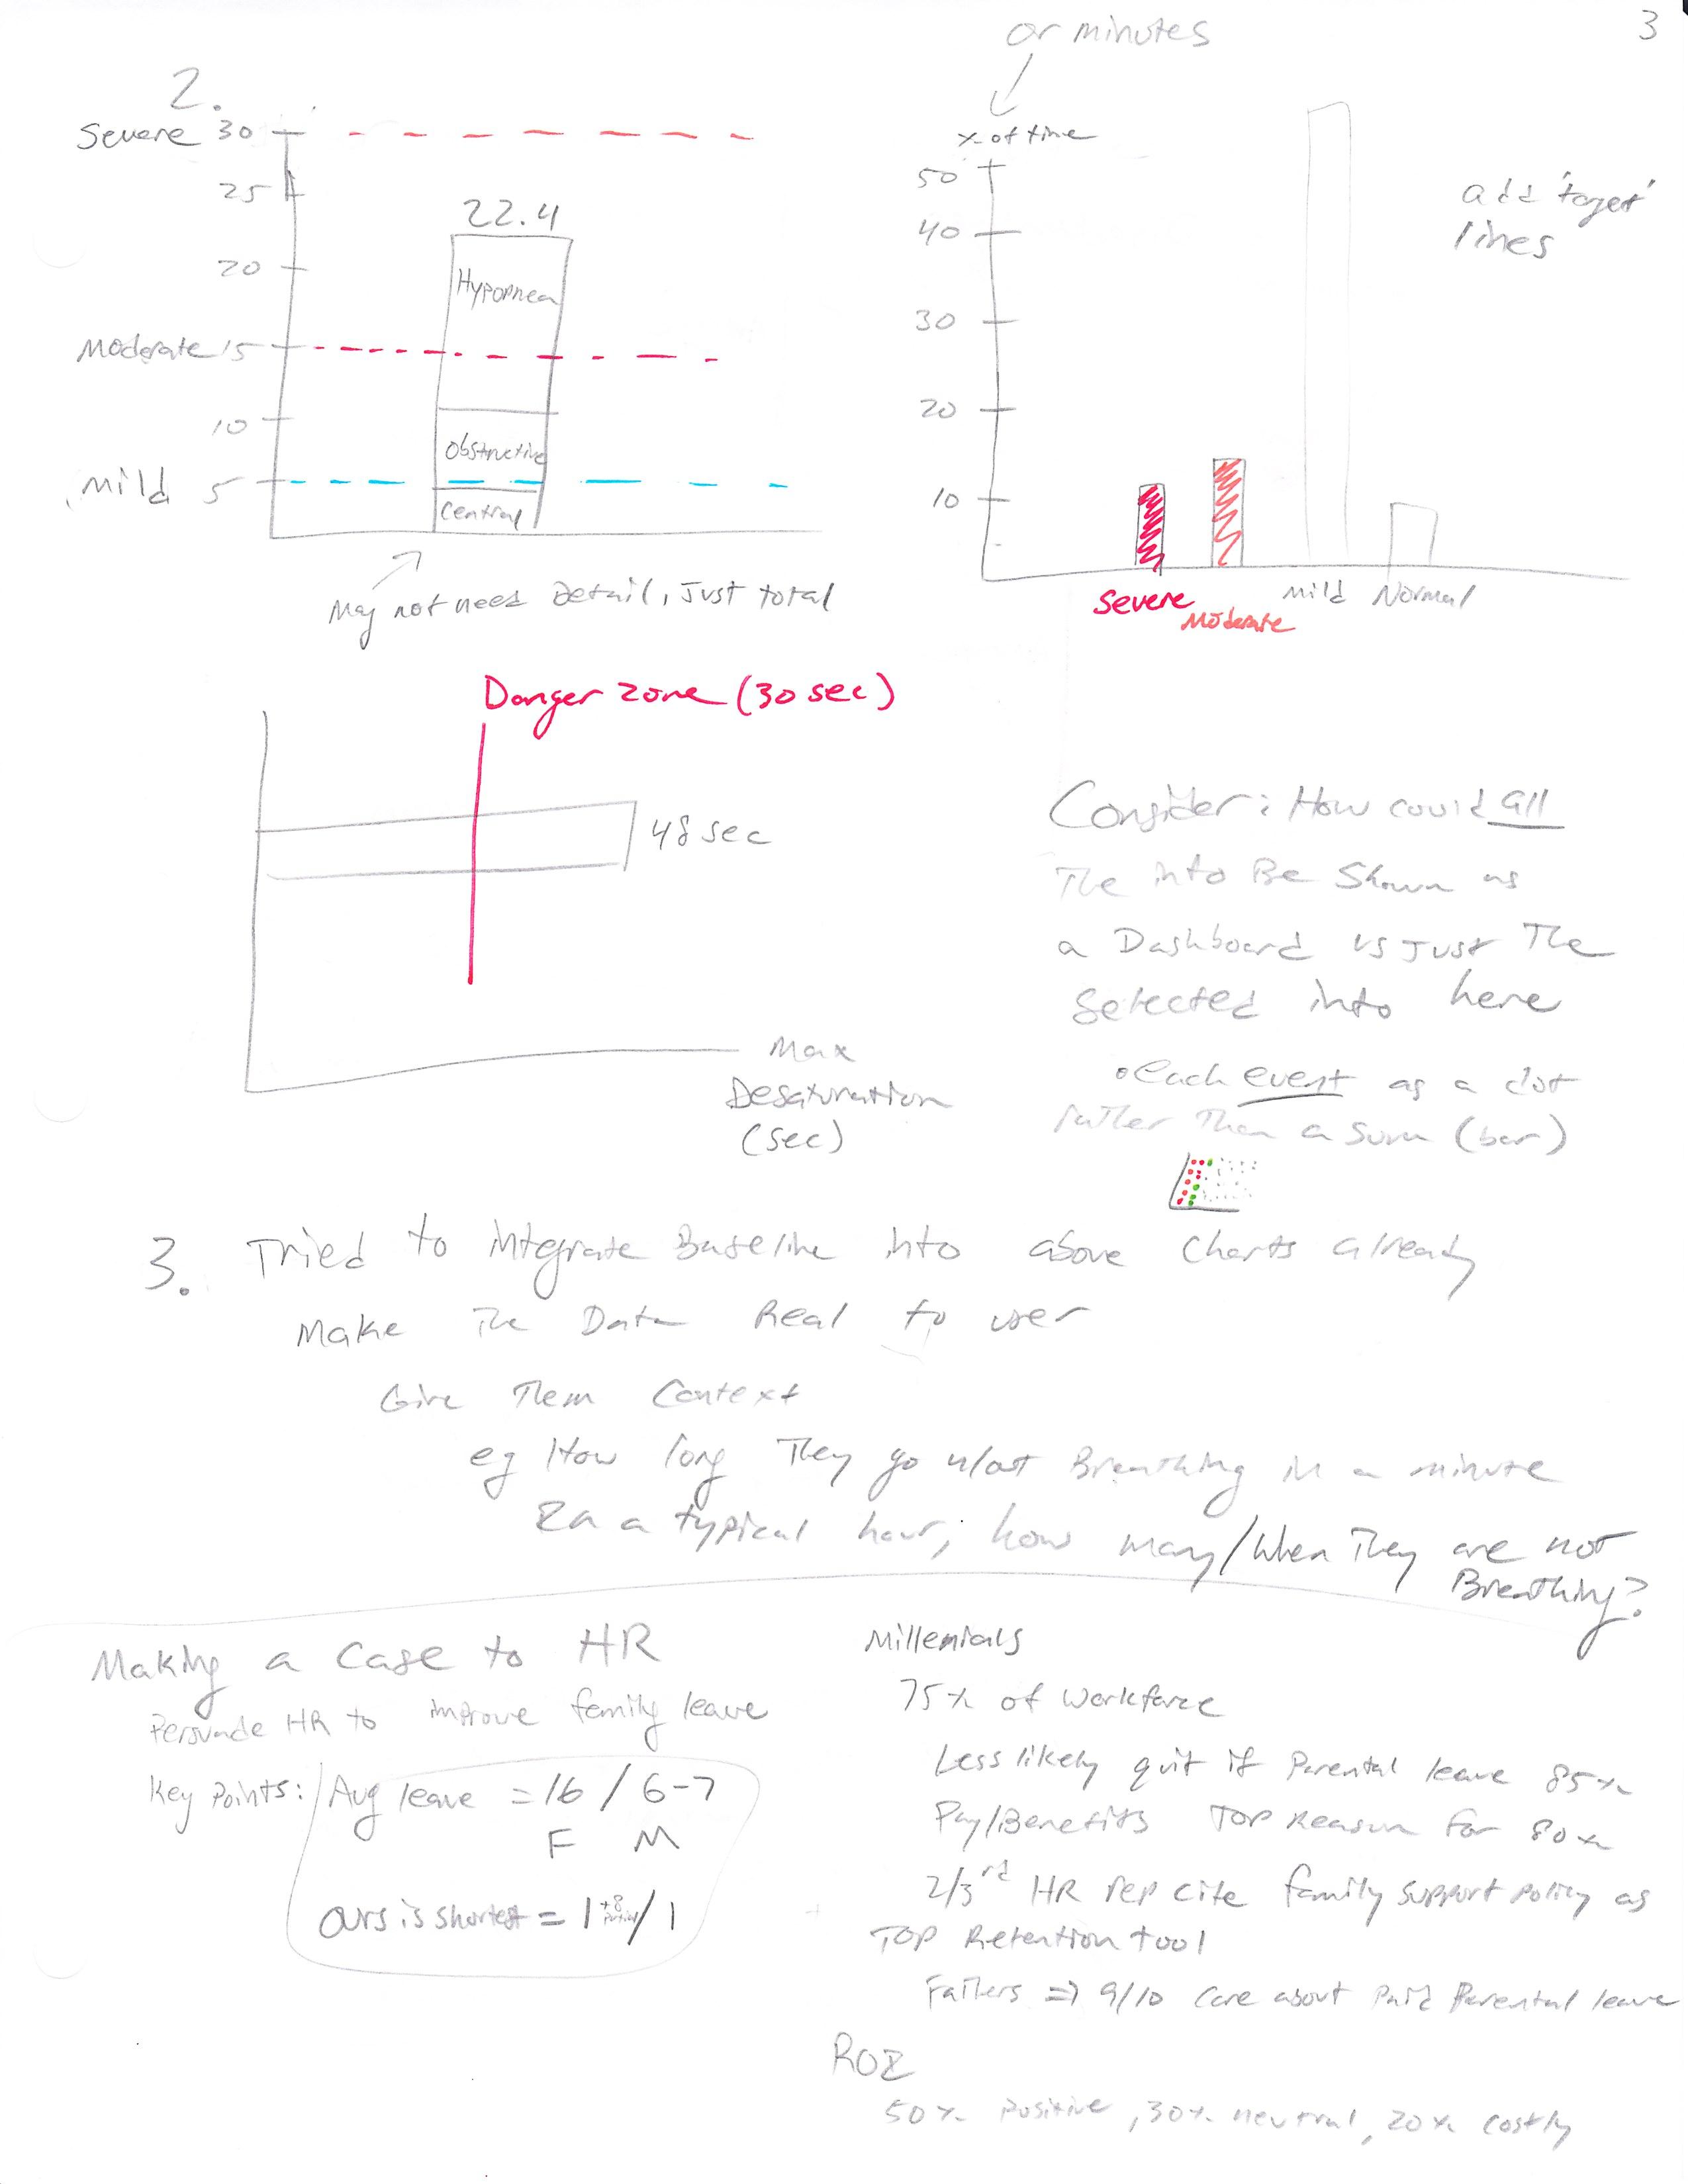 3
2.
Severe 30
25
22.4
20
Hypopnea
Moderate 15
10
Obstructive
Mild 5
Central
May not need Detail, Just total
or minutes
% of time
50
40
30
20
10
Severe
Moderate
Mild
Normal
add 'target'
lines
Danger zone (30 sec)
48 sec
Max
Desaturation
(sec)
Consider: How could all
The info Be Shown as
a Dashboard vs Just The
Selected info here
• Each event as a dot
rather Than a sum (bar)
3. Tried to integrate Baseline into above Charts already
Make The Data Real to user
Give Them Context
eg How long They go w/out Breathing in a minute
In a typical hour, how many/when They are not
Breathing?
Making a Case to HR
Persuade HR to improve family leave
Key Points: Avg leave = 16 / 6-7
F M
Ours is shortest = 1 +8 / 1
Millenials
75% of workforce
Less likely quit if Parental leave 85%
Pay/Benefits Top Reason for 80%
2/3rd HR rep cite family support policy as
TOP Retention tool
Fathers => 9/10 care about Paid Parental leave
ROI
50% positive, 30% neutral, 20% costly